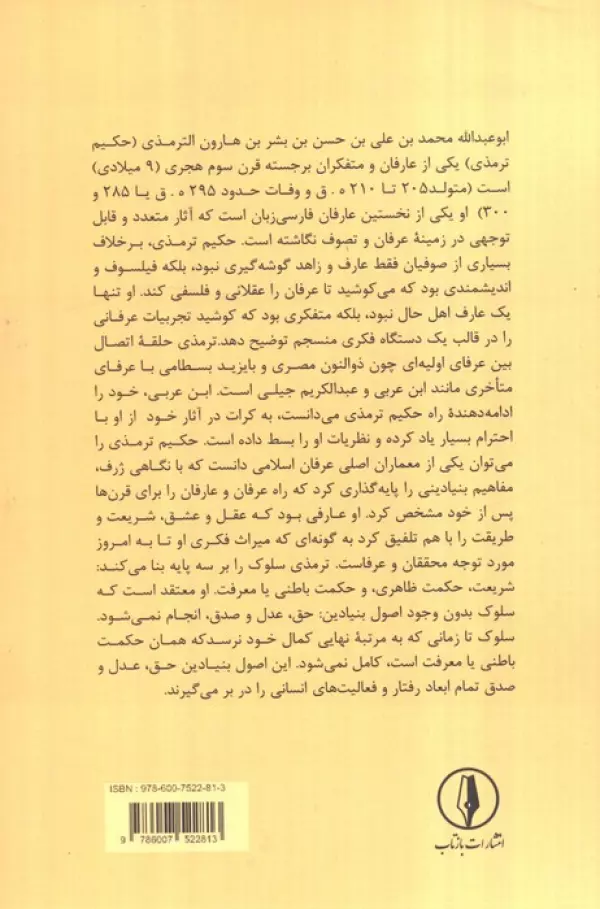 ابوعبدالله محمد بن علی بن حسن بن بشر بن هارون الترمذی (حکیم
ترمذی) یکی از عارفان و متفکران برجسته قرن سوم هجری (۹ میلادی)
است (متولد۲۰۵ تا ۲۱۰ ه . ق و وفات حدود ۲۹۵ ه . ق یا ۲۸۵ و
۳۰۰) او یکی از نخستین عارفان فارسی‌زبان است که آثار متعدد و قابل
توجهی در زمینهٔ عرفان و تصوف نگاشته است. حکیم ترمذی، برخلاف
بسیاری از صوفیان فقط عارف و زاهد گوشه‌گیری نبود، بلکه فیلسوف و
اندیشمندی بود که می‌کوشید تا عرفان را عقلانی و فلسفی کند. او تنها
یک عارف اهل حال نبود، بلکه متفکری بود که کوشید تجربیات عرفانی
را در قالب یک دستگاه فکری منسجم توضیح دهد.ترمذی حلقهٔ اتصال
بین عرفای اولیه‌ای چون ذوالنون مصری و بایزید بسطامی با عرفای
متأخری مانند ابن عربی و عبدالکریم جیلی است. ابن عربی، خود را
ادامه‌دهندهٔ راه حکیم ترمذی می‌دانست، به کرات در آثار خود از او با
احترام بسیار یاد کرده و نظریات او را بسط داده است. حکیم ترمذی را
می‌توان یکی از معماران اصلی عرفان اسلامی دانست که با نگاهی ژرف،
مفاهیم بنیادینی را پایه‌گذاری کرد که راه عرفان و عارفان را برای قرن‌ها
پس از خود مشخص کرد. او عارفی بود که عقل و عشق، شریعت و
طریقت را با هم تلفیق کرد به گونه‌ای که میراث فکری او تا به امروز
مورد توجه محققان و عرفاست. ترمذی سلوک را بر سه پایه بنا می‌کند:
شریعت، حکمت ظاهری، و حکمت باطنی یا معرفت. او معتقد است که
سلوک بدون وجود اصول بنیادین: حق، عدل و صدق، انجام نمی‌شود.
سلوک تا زمانی که به مرتبهٔ نهایی کمال خود نرسدکه همان حکمت
باطنی یا معرفت است، کامل نمی‌شود. این اصول بنیادین حق، عدل و
صدق تمام ابعاد رفتار و فعالیت‌های انسانی را در بر می‌گیرند.
ISBN : 978-600-7522-81-3
9 786007 522813
انتشارات بازتاب